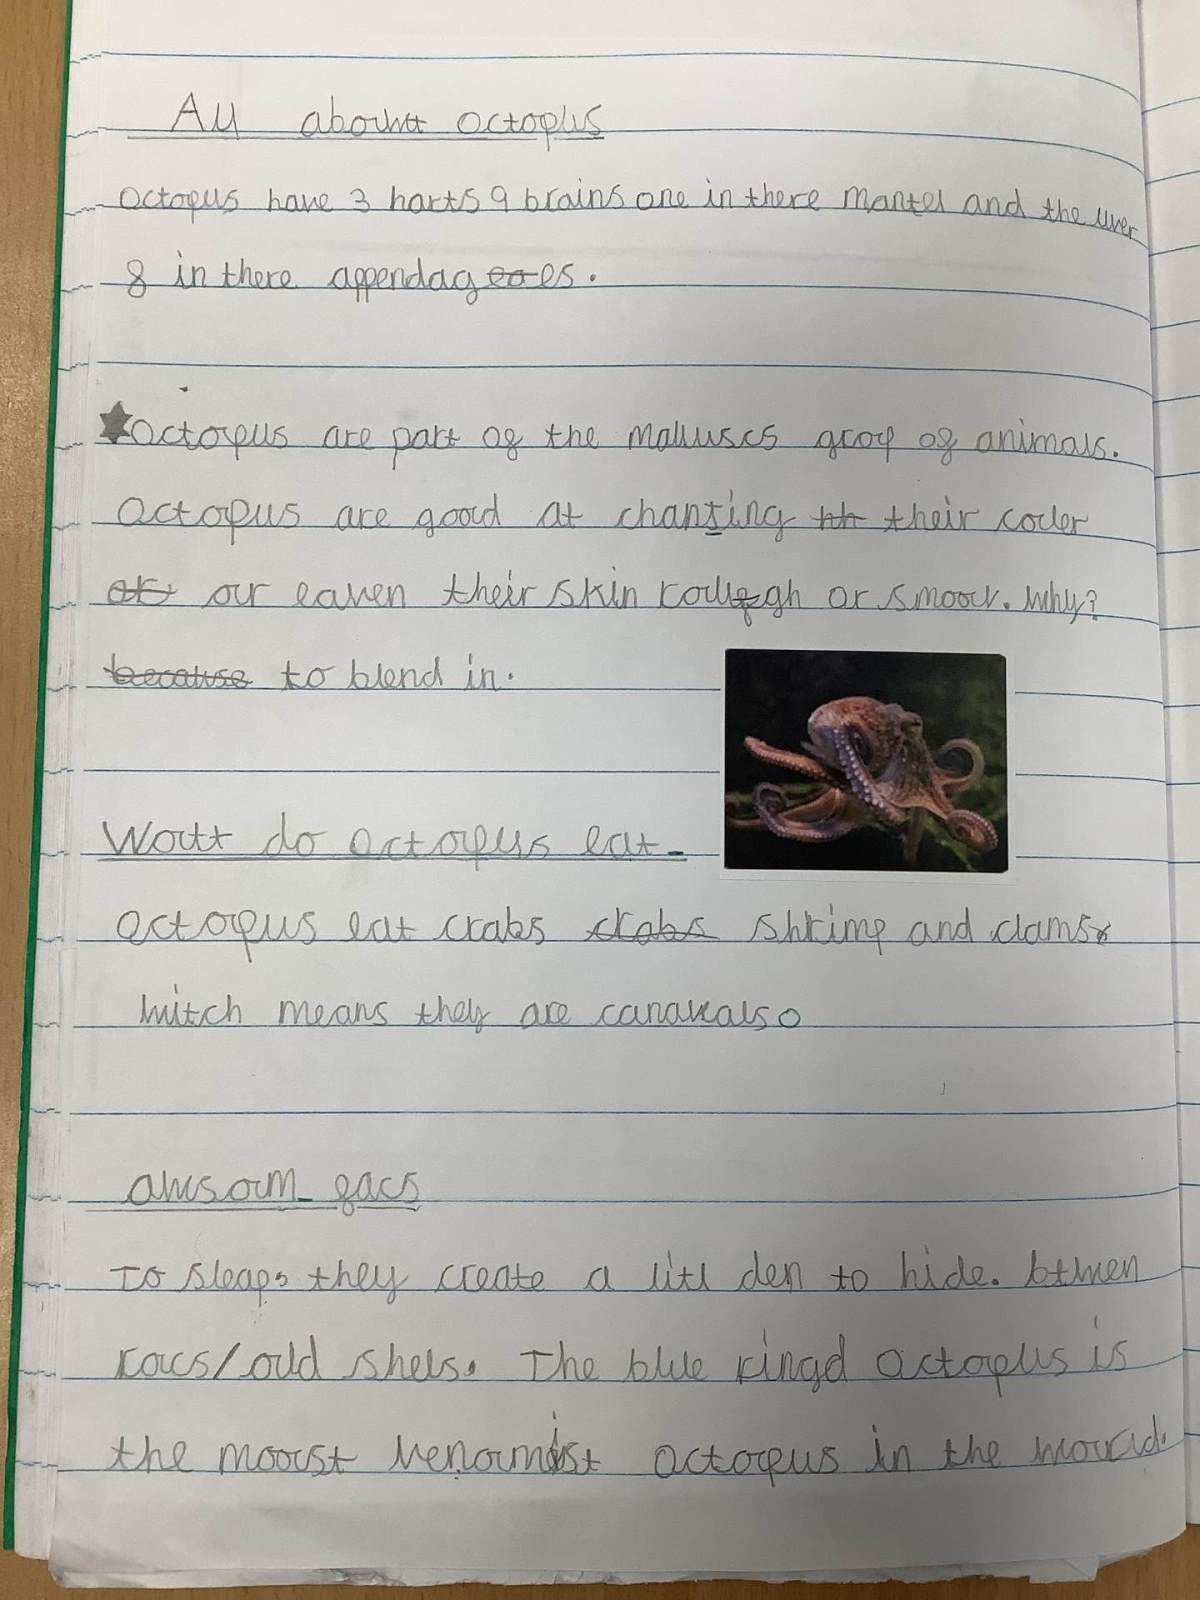 All about octopus
octopus have 3 harts 9 brains one in there mantel and the uver
8 in there appendages.
octopus are part of the malluscs groop of animals.
octopus are good at chansing their coler
or eaven their skin rough or smoov. Why?
because to blend in.
Watt do octopus eat
octopus eat crabs crabs shrimp and clams
witch means they are canavals
awsom facs
To sleap, they create a litl den to hide. btwen
rocs/ould shels. The blue ringd octopus is
the moast venomist octopus in the would.